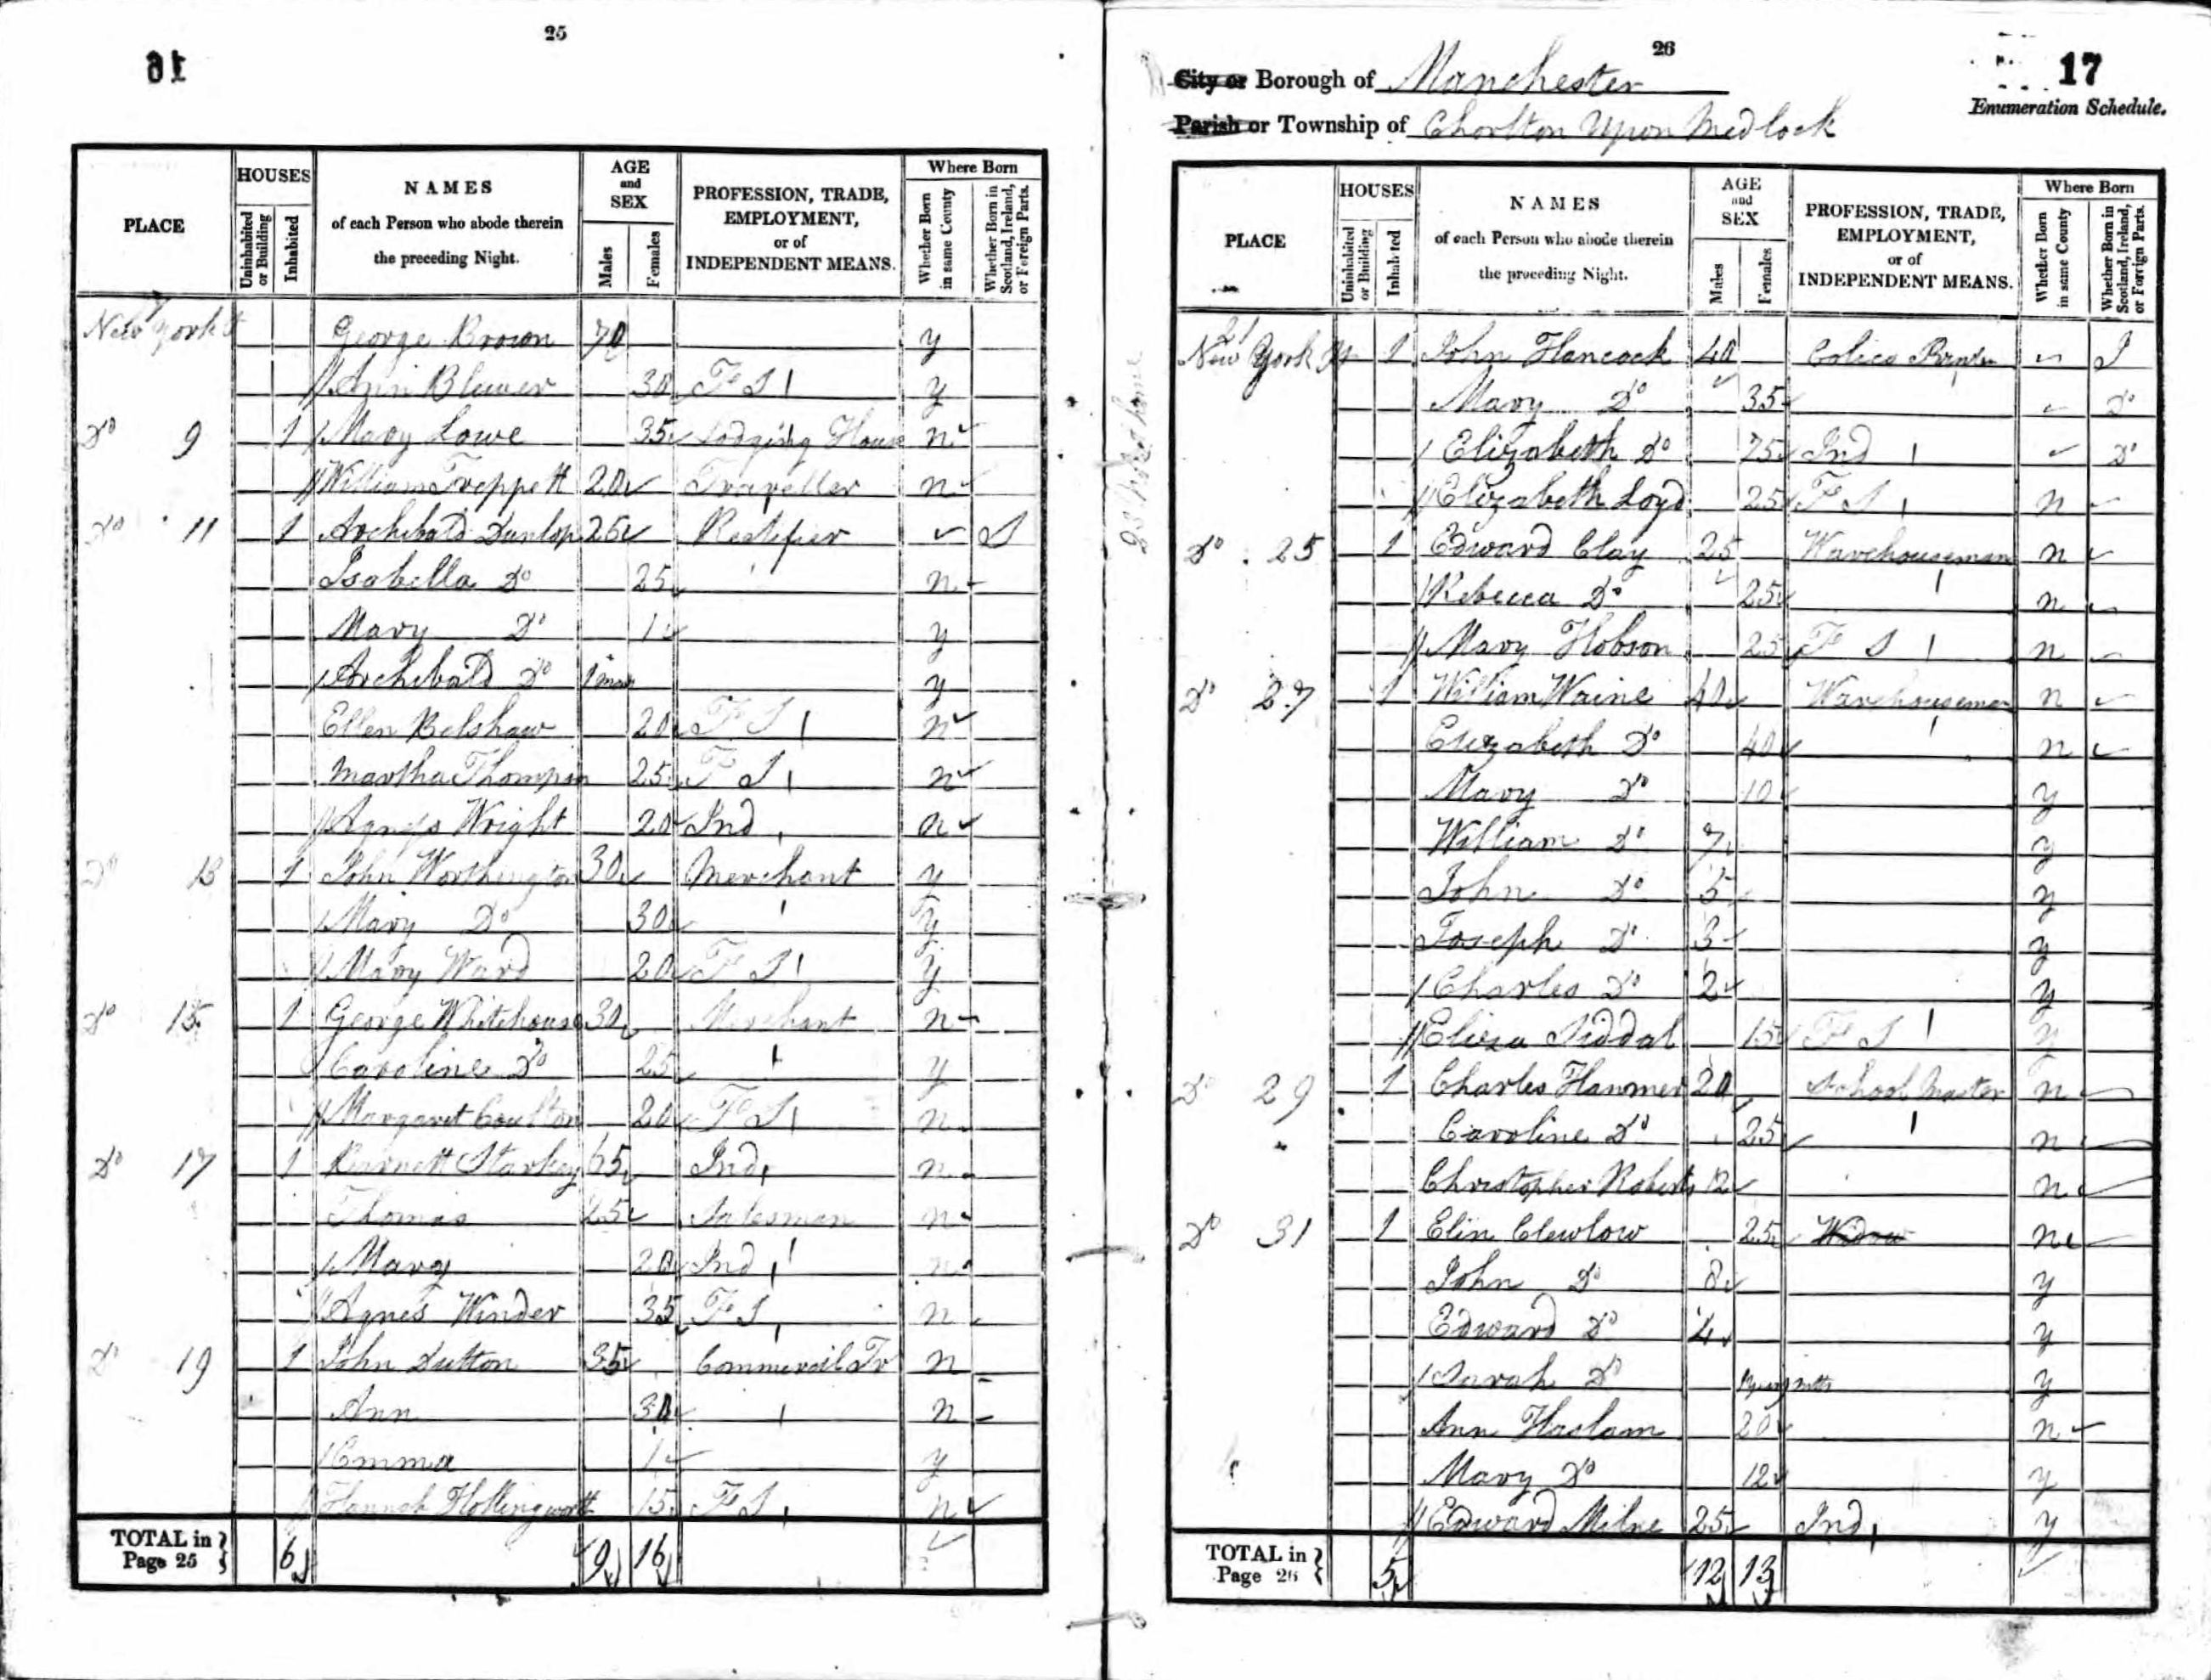 25
16
PLACE
HOUSES
Uninhabited or Building
Inhabited
NAMES
of each Person who abode therein
the preceding Night.
AGE
and
SEX
Males
Females
PROFESSION, TRADE,
EMPLOYMENT,
or of
INDEPENDENT MEANS.
Where Born
Whether Born in same County
Whether Born in Scotland, Ireland, or Foreign Parts.
New York St George Brown 70 y
Ann Blewer 30 F S y
Do 9 1 Mary Lowe 35 Lodging House n
William Treppett 20 Traveller n
Do 11 1 Archibald Dunlop 25 Rectifier S
Isabella Do 25 n
Mary Do 1 y
Archibald Do 1 mon y
Ellen Belshaw 20 F S n
Martha Thompson 25 F S n
Agness Wright 20 Ind n
Do 13 1 John Worthington 30 Merchant y
Mary Do 30 y
Mary Ward 20 F S y
Do 15 1 George Whitehouse 30 Merchant n
Caroline Do 25 y
Margaret Coulton 20 F S n
Do 17 1 Barnett Starkey 65 Ind n
Thomas 25 Salesman n
Mary 20 Ind n
Agnes Winder 35 F S n
Do 19 1 John Dutton 35 Commercil Tr n
Ann 30 n
Emma 1 y
Hannah Hollingworth 15 F S n
TOTAL in Page 25 } 6 9 16
26
17
City or Borough of Manchester
Enumeration Schedule.
Parish or Township of Chorlton Upon Medlock
PLACE
HOUSES
Uninhabited or Building
Inhabited
NAMES
of each Person who abode therein
the preceding Night.
AGE
and
SEX
Males
Females
PROFESSION, TRADE,
EMPLOYMENT,
or of
INDEPENDENT MEANS.
Where Born
Whether Born in same County
Whether Born in Scotland, Ireland, or Foreign Parts.
New York St 1 John Hancock 40 Calico Printer I
Mary Do 35 Do
Elizabeth Do 75 Ind Do
Elizabeth Loyd 25 F S n
Do 25 1 Edward Clay 25 Warehouseman n
Rebecca Do 25 n
Mary Hobson 25 F S n
Do 27 1 William Waine 40 Warehouseman n
Elizabeth Do 40 n
Mary Do 10 y
William Do 7 y
John Do 5 y
Joseph Do 3 y
Charles Do 2 y
Eliza Siddal 15 F S y
Do 29 1 Charles Hanmer 20 School Master n
Caroline Do 25 n
Christopher Roberts 12 n
Do 31 1 Elin Clewlow 25 Widow n
John Do 8 y
Edward Do 4 y
Sarah Do y
Ann Haslam 20 n
Mary Do 12 y
Edward Milne 25 Ind y
TOTAL in Page 26 } 5 12 13